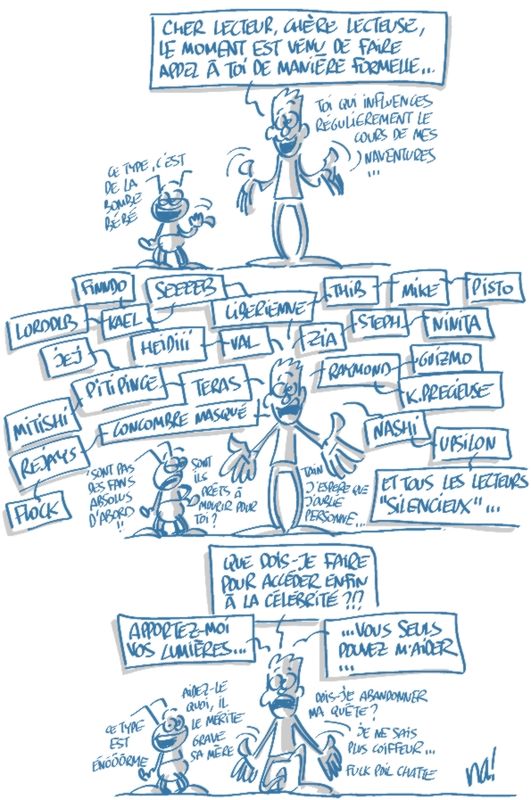 CHER LECTEUR, CHÈRE LECTEUSE,
LE MOMENT EST VENU DE FAIRE
APPEL À TOI DE MANIÈRE FORMELLE...
TOI QUI INFLUENCES
RÉGULIÈREMENT LE
COURS DE MES
NAVENTURES
...
CE TYPE, C'EST
DE LA
BOMBE
BÉBÉ
FINNDO
SEEEEB
LIBERIENNE
THIB
MIKE
PISTO
LORDDLB
KAEL
JEJ
HEIDIII
VAL
ZIA
STEPH
NINITA
PITIPINGE
TERAS
RAYMOND
GUIZMO
K.PRECIEUSE
MITISHI
CONCOMBRE MASQUÉ
NASHI
UPSILON
REJAYS
FLOCK
SONT PAS
DES FANS
ABSOLUS
D'ABORD
!!
SONT
ILS
PRÊTS À
MOURIR POUR
TOI ?
TAIN
J'ESPÈRE QUE
J'OUBLIE
PERSONNE...
ET TOUS LES LECTEURS
"SILENCIEUX"...
QUE DOIS-JE FAIRE
POUR ACCÉDER ENFIN
À LA CÉLÉBRITÉ ?!?
APPORTEZ-MOI
VOS LUMIÈRES...
...VOUS SEULS
POUVEZ M'AIDER
...
CE TYPE
EST
ÉNÔÔÔRME
AIDEZ-LE
QUOI, IL
LE MÉRITE
GRAVE
SA MÈRE
DOIS-JE ABANDONNER
MA QUÊTE ?
JE NE SAIS
PLUS COIFFEUR...
FUCK POIL CHATTE
na!